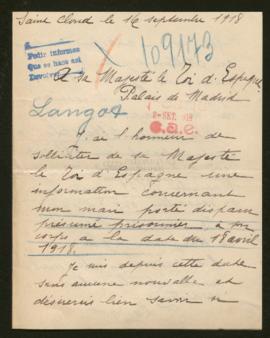 Saint Cloud le 16 septembre 1918
Pedir informes
Que se hace así
109173
A sa Majesté le Roi d'Espagne
Palais de Madrid
Langot
J'ai l'honneur de
solliciter de sa Majesté
le Roi d'Espagne une
information concernant
mon mari porté disparu
présumé prisonnier à son
corps à la date du 18 avril
1918.
Je suis depuis cette date
sans aucune nouvelle et
désirerais bien savoir